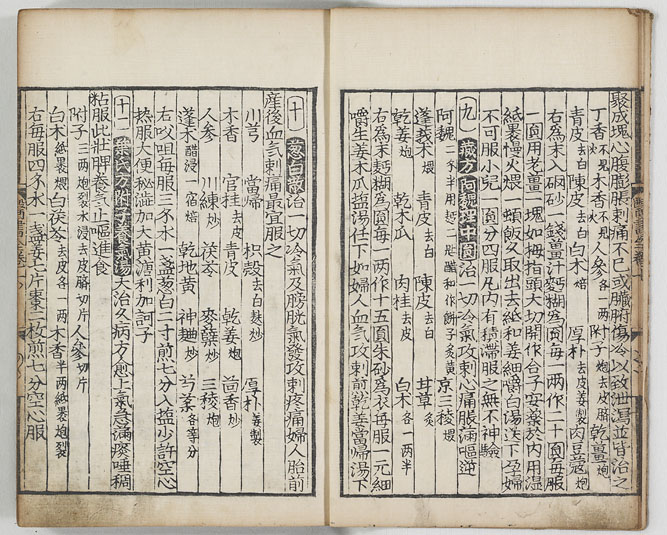 聚成塊心腹膨脹刺痛不已或臟腑傷冷以致泄瀉並皆治之
丁香不見火木香不見火人參各一兩附子炮去皮臍乾薑炮
青皮去白陳皮去白白木焙厚朴去皮姜製肉豆蔻炮
右為末入硇砂一錢薑汁麪糊為圓每一兩作二十圓每服
一圓用老薑一塊如拇指頭大切開作合子安藥於內用濕
紙裹慢火煨一頓飯久取出去紙和姜細嚼白湯送下孕婦
不可服小兒一圓分四服凡內有積滯服之無不神驗
九 嚴方阿魏理中圓 治一切冷氣攻刺心痛脹滿嘔逆
阿魏二分半用醋二匙和作餅子炙黃 京三稜煨
蓬莪木煨 青皮去白 陳皮去白 甘草炙
乾姜炮 乾木瓜 肉桂去皮 白木各一兩半
右為末麪糊為圓每一兩作十五圓朱砂為衣每服一元細
嚼生姜木瓜塩湯任下如婦人血氣攻刺煎乾姜當歸湯下
十 葱白散 治一切冷氣及膀胱氣發攻刺疼痛婦人胎前
産後血氣刺痛最宜服之
川芎 當歸 枳殻去白麩炒 厚朴姜製
木香 官桂去皮 青皮 乾姜炮 茴香炒
人參 川練炒 茯苓 麥蘖炒 三稜炮
蓬木醋浸一宿焙 乾地黄 神麯炒 芍藥各等分
右㕮咀每服三名水一盞葱白二寸煎七分入塩少許空心
热服大便秘澁加大黄溏利加訶子
十一 方附子養氣湯 大治久病方愈上氣急滿痰唾稠
粘服此壯脾養氣止嘔進食
附子三兩炮裂水浸去皮臍切片人參切片
白木紙裹煨白茯苓去皮各一兩木香半兩紙裹炮裂
右每服四名水一盞姜七片棗二枚煎七分空心服